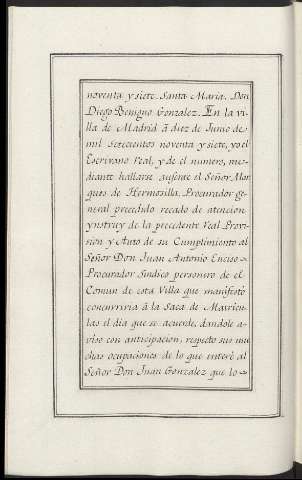 noventa y siete. Santa Maria. Don
Diego Benigno Gonzalez. En la vi
lla de Madrid â diez de Junio de
mil Setecientos noventa y siete, yo el
Escrivano Real, y de el numero, me=
diante hallarse ausente el Señor Mar
ques de Hermosilla, Procurador ge=
neral precedido recado de atencion
ynstruy de la precedente Real Provi
sion y Auto de su Cumplimiento al
Señor Don Juan Antonio Enciso
Procurador Sindico personero de el
Comun de esta Villa que manifestò
concurriria â la Saca de Matricu
las el dia que se acuerde, dandole a=
viso con anticipacion, respecto sus mu
chas ocupaciones de lo que enterè al
Señor Don Juan Gonzalez que lo